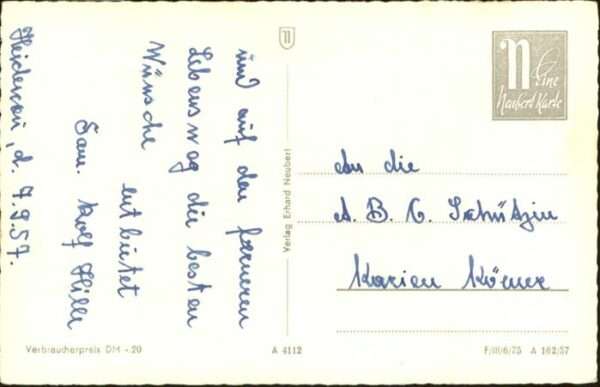 und auf den ferneren
Lebensweg die besten
Wünsche
entbietet
Fam. Rolf Hille
Heidenau, d. 7.9.57.
Verlag Erhard Neubert
N Eine
Neubert Karte
An die
A. B. C. Schützin
Karien Körner
Verbraucherpreis DM -20
A 4112
F/III/6/75 A 162/57